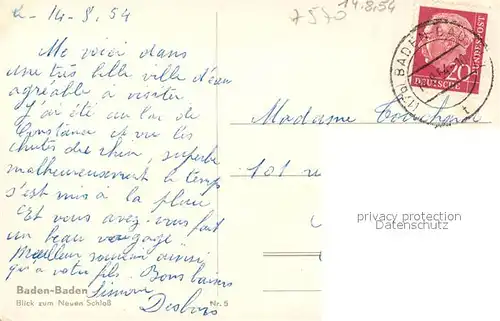 le 14-8-54
7520
14.8.54
Me voici dans
une très belle ville d'eau
agréable à visiter
J'ai été au lac de
Constance et vu les
chutes du rhin, superbe
malheureusement le temps
s'est mis à la pluie
Et vous avez-vous fait
un beau voyage
Meilleur souvenir ainsi
qu'à votre fils. Bons baisers
Simone
Baden-Baden
Blick zum Neuen Schloß
Nr. 5
BADEN-BADEN
20
DEUTSCHE
BUNDESPOST
Madame
101
privacy protection
Datenschutz